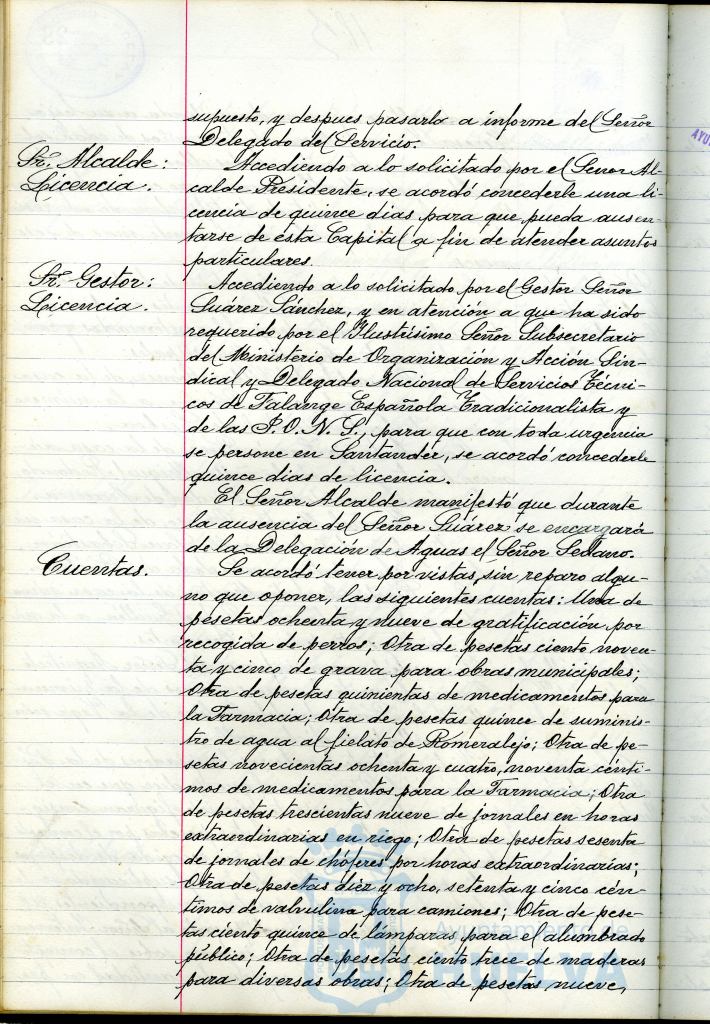 supuesto, y despues pasarlo a informe del Señor
Delegado del Servicio.
Sr. Alcalde:
Licencia.
Accediendo a lo solicitado por el Señor Al-
calde Presidente, se acordó concederle una li-
cencia de quince dias para que pueda ausen-
tarse de ésta Capital a fin de atender asuntos
particulares.
Sr. Gestor:
Licencia.
Accediendo a lo solicitado por el Gestor Señor
Suárez Sánchez, y en atención a que ha sido
requerido por el Ilustrísimo Señor Subsecretario
del Ministerio de Organización y Acción Sin-
dical y Delegado Nacional de Servicios Técni-
cos de Falange Española Tradicionalista y
de las J.O.N.S., para que con toda urgencia
se persone en Santander, se acordó concederle
quince dias de licencia.
El Señor Alcalde manifestó que durante
la ausencia del Señor Suárez se encargará
de la Delegación de Aguas el Señor Sedano.
Cuentas.
Se acordó tener por vistas, sin reparo algu-
no que oponer, las siguientes cuentas: Una de
pesetas ochenta y nueve de gratificación por
recogida de perros; Otra de pesetas ciento noven-
ta y cinco de grava para obras municipales;
Otra de pesetas quinientas de medicamentos para
la Farmacia; Otra de pesetas quince de suminis-
tro de agua al fielato de Romeralejo; Otra de pe-
setas novecientas ochenta y cuatro, noventa cénti-
mos de medicamentos para la Farmacia; Otra
de pesetas trescientas nueve de jornales en horas
extraordinarias en riego; Otra de pesetas sesenta
de jornales de chóferes por horas extraordinarias;
Otra de pesetas diez y ocho, setenta y cinco cén-
timos de valvulina para camiones; Otra de pese-
tas ciento quince de lámparas para el alumbrado
público; Otra de pesetas ciento trece de maderas
para diversas obras; Otra de pesetas nueve,
Ayuntamiento de
HUELVA